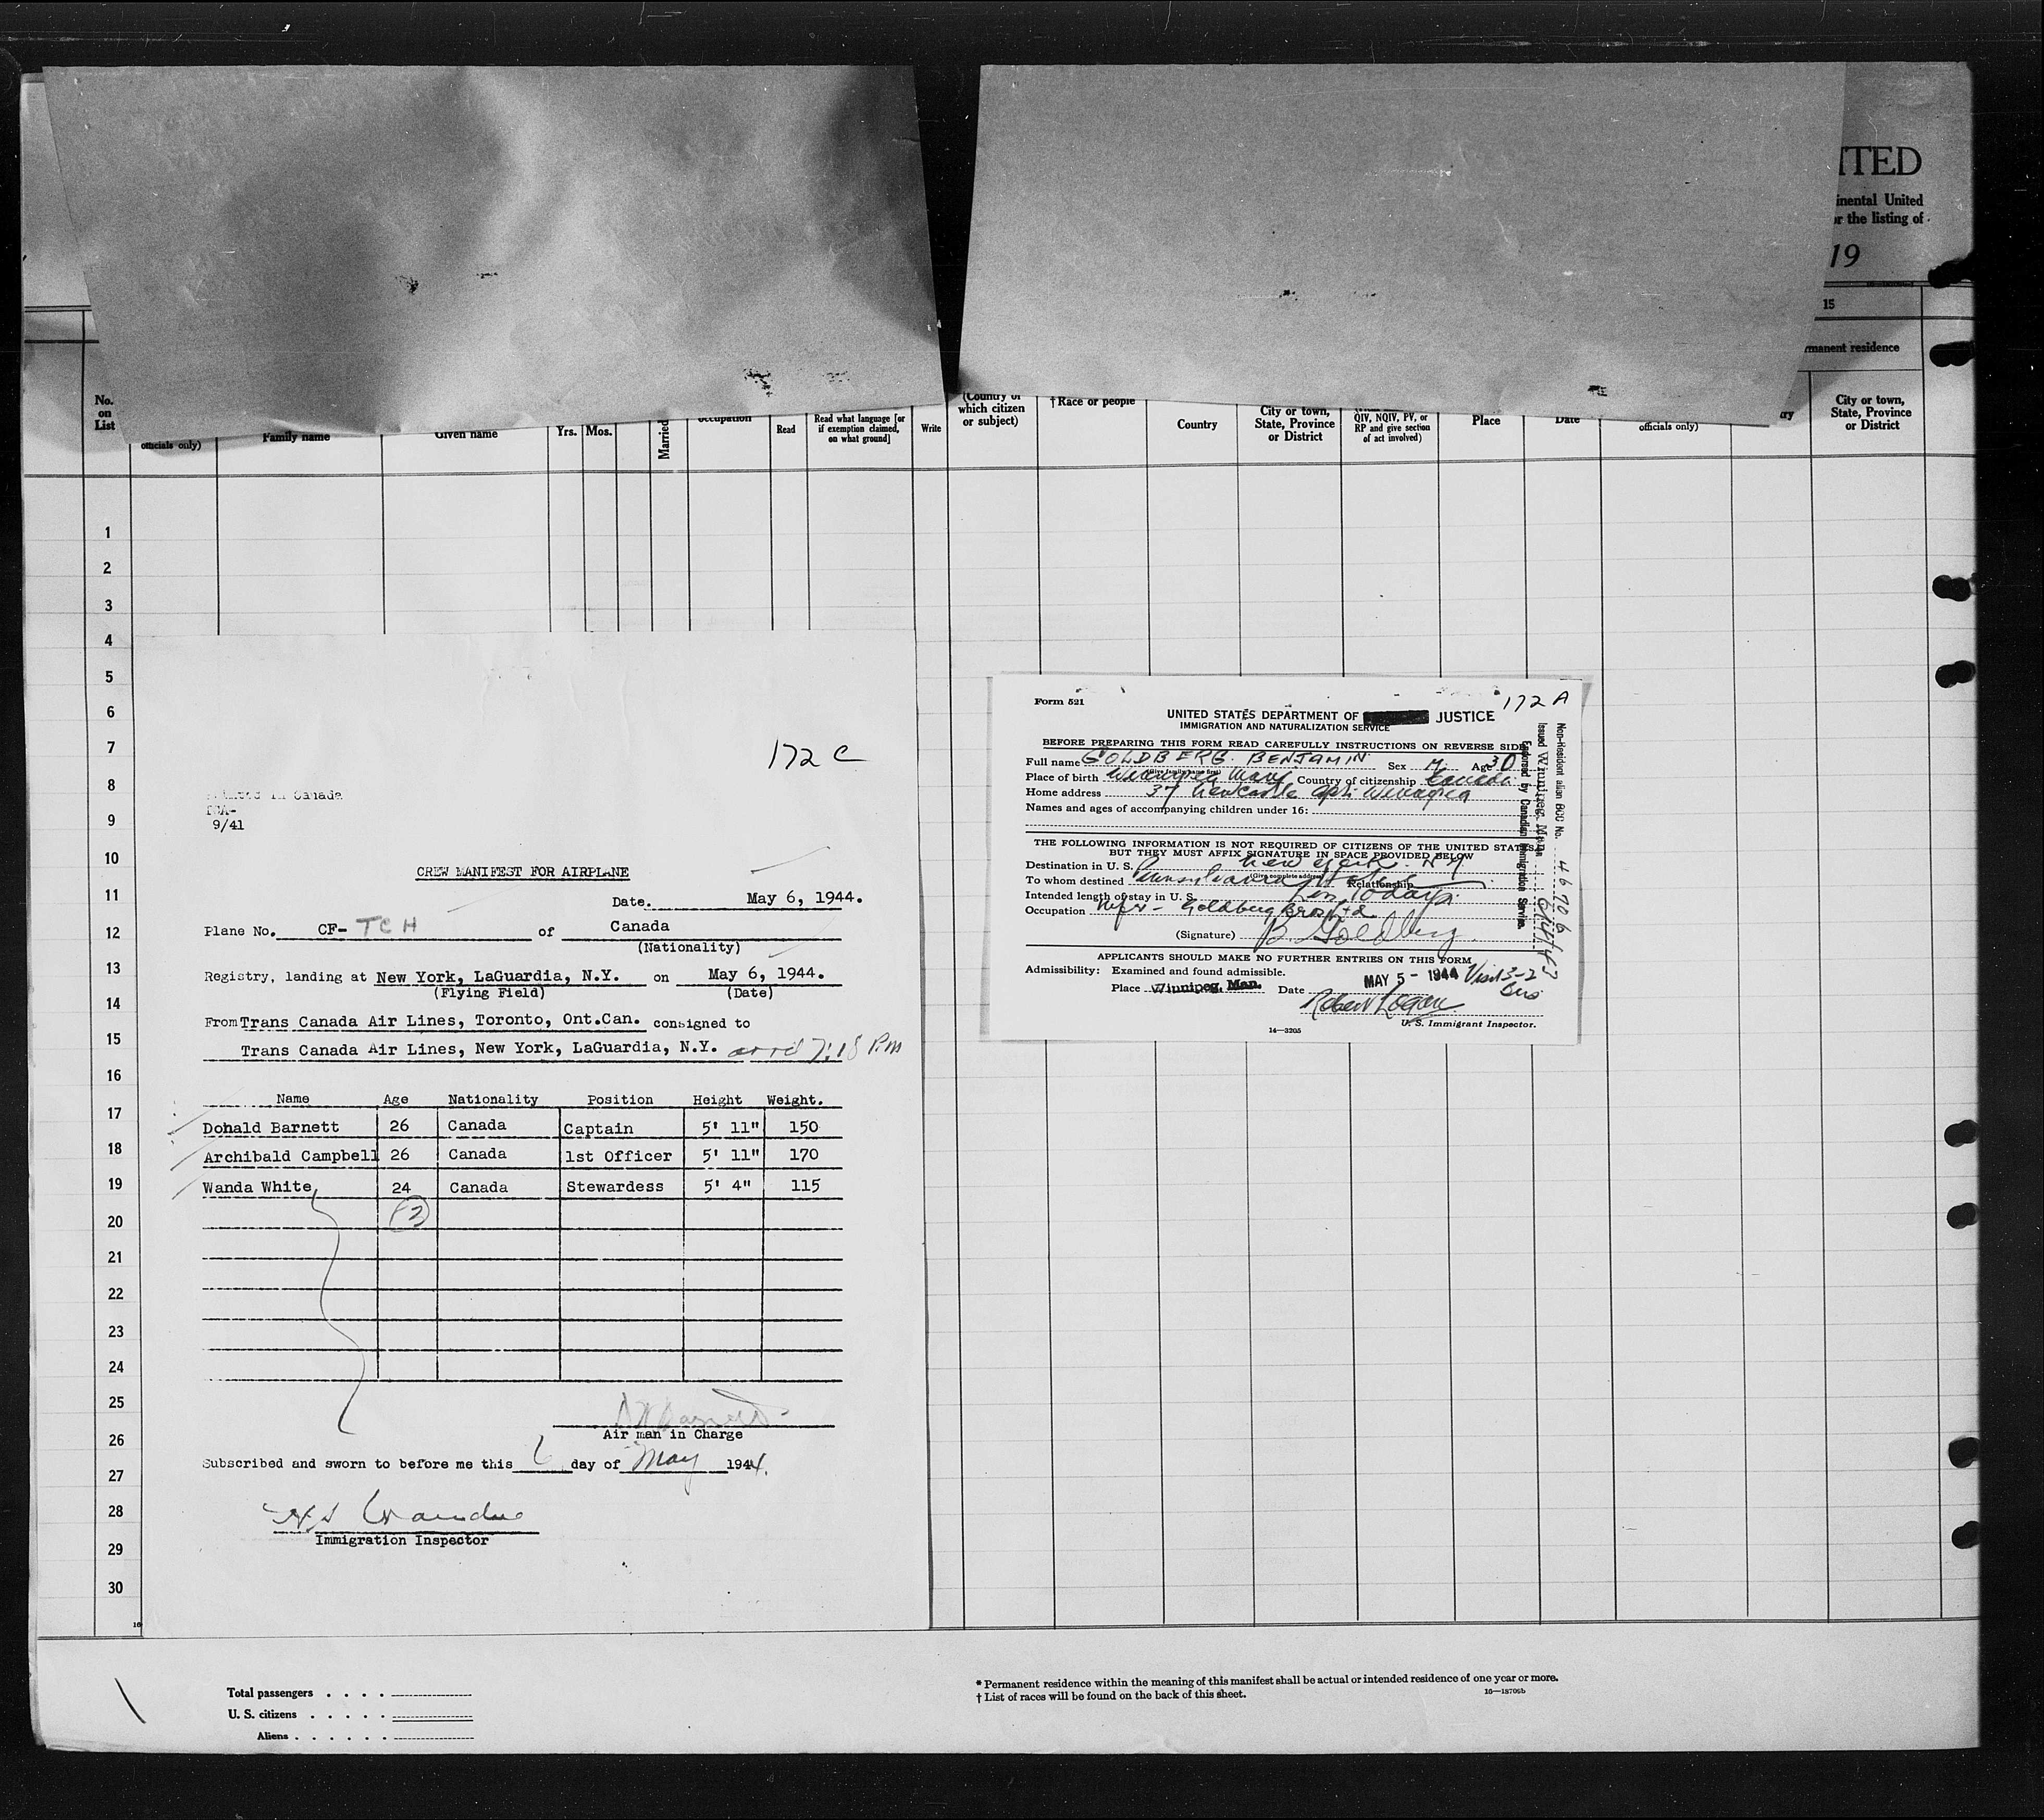 ITED
inental United
or the listing of
19
15
rmanent residence
No.
on
List
officials only)
Family name
Given name
Yrs.
Mos.
Married
occupation
Read
Read what language [or
if exemption claimed,
on what ground]
Write
(Country of
which citizen
or subject)
†Race or people
Country
City or town,
State, Province
or District
QIV, NQIV, PV, or
RP and give section
of act involved)
Place
Date
officials only)
ry
City or town,
State, Province
or District
1
2
3
4
5
6
7
8
9
10
11
12
13
14
15
16
17
18
19
20
21
22
23
24
25
26
27
28
29
30
172 C
in Canada
9/41
CREW MANIFEST FOR AIRPLANE
Date. May 6, 1944.
Plane No. CF- TCH of Canada
(Nationality)
Registry, landing at New York, LaGuardia, N.Y. on May 6, 1944.
(Flying Field) (Date)
From Trans Canada Air Lines, Toronto, Ont.Can. consigned to
Trans Canada Air Lines, New York, LaGuardia, N.Y. arr'd 7:18 P.m
Name Age Nationality Position Height Weight.
Donald Barnett 26 Canada Captain 5' 11" 150
Archibald Campbell 26 Canada 1st Officer 5' 11" 170
Wanda White 24 Canada Stewardess 5' 4" 115
Air man in Charge
Subscribed and sworn to before me this 6 day of May 1944.
Immigration Inspector
172 A
Form 521
UNITED STATES DEPARTMENT OF JUSTICE
IMMIGRATION AND NATURALIZATION SERVICE
BEFORE PREPARING THIS FORM READ CAREFULLY INSTRUCTIONS ON REVERSE SIDE
Full name GOLDBERG. BENJAMIN Sex M. Age 30
(Give family name first)
Place of birth Winnipeg Man Country of citizenship Canada
Home address 37 Newcastle Apts Winnipeg
Names and ages of accompanying children under 16:
THE FOLLOWING INFORMATION IS NOT REQUIRED OF CITIZENS OF THE UNITED STATES,
BUT THEY MUST AFFIX SIGNATURE IN SPACE PROVIDED BELOW
Destination in U. S. New York. N.Y.
(Give complete address)
To whom destined Pennsylvania Hotel Relationship
Intended length of stay in U. S. Ten 10 days.
Occupation Mfr - Goldberg Bros Ltd
(Signature) B. Goldberg
APPLICANTS SHOULD MAKE NO FURTHER ENTRIES ON THIS FORM
Admissibility: Examined and found admissible.
Place Winnipeg, Man. Date MAY 5 - 1944
Robert Logan
U. S. Immigrant Inspector.
14—3205
Non-Resident alien BCC No. 46706
Issued Winnipeg, Man
Endorsed by Canadian Immigration Service.
Total passengers
U. S. citizens
Aliens
* Permanent residence within the meaning of this manifest shall be actual or intended residence of one year or more.
† List of races will be found on the back of this sheet.
16—18706b